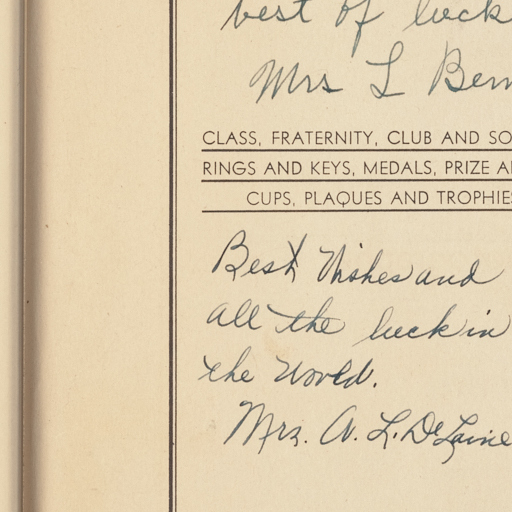 best of luck
Mrs L Bern
CLASS, FRATERNITY, CLUB AND SO
RINGS AND KEYS, MEDALS, PRIZE A
CUPS, PLAQUES AND TROPHIES
Best Wishes and
all the luck in
the World.
Mrs. A. L. DeLaine